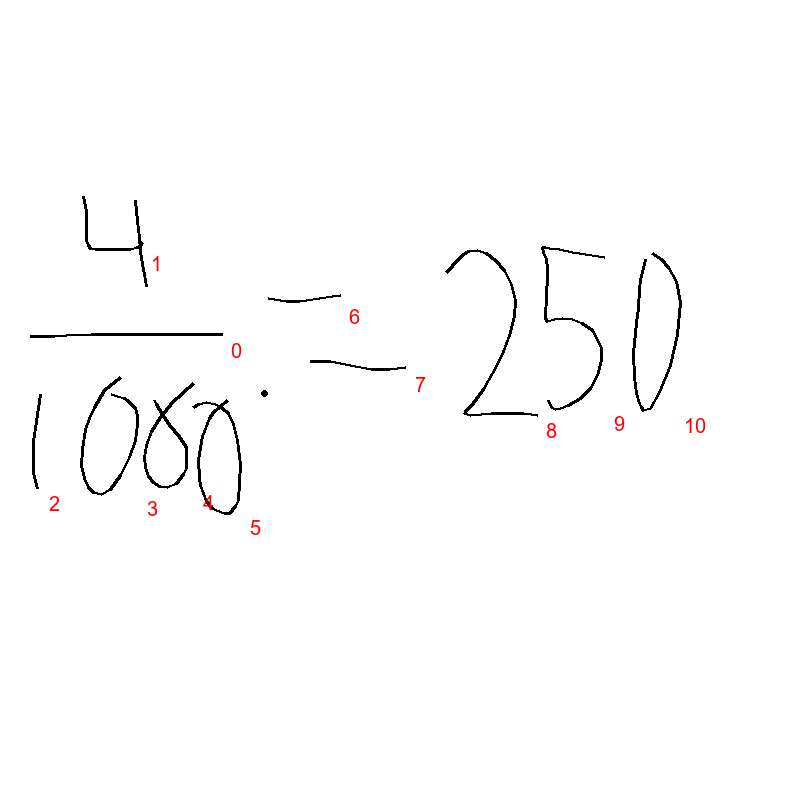 4
1000 . = 250
1
0
6
7
2
3
4
5
8
9
10